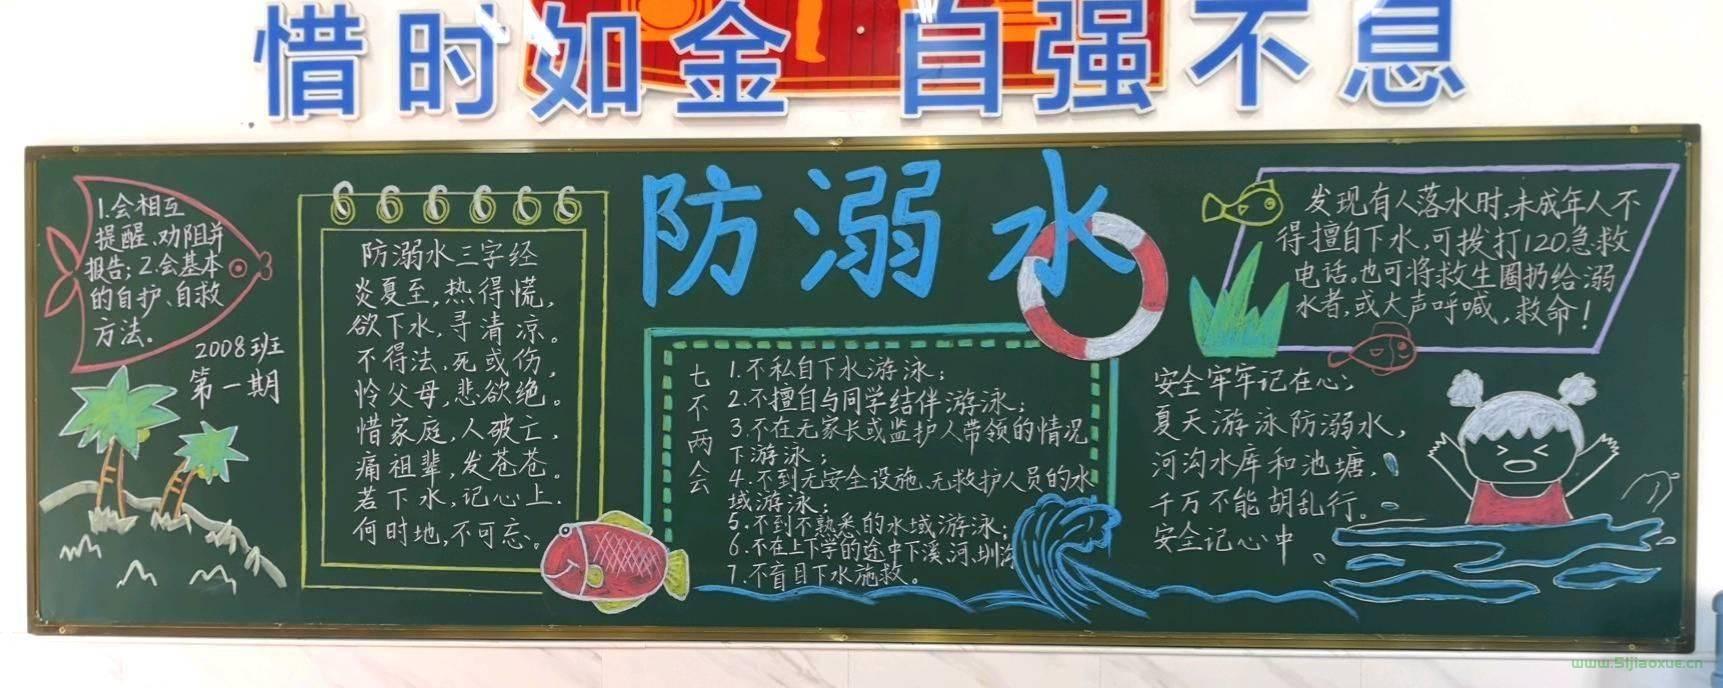 惜时如金 自强不息
防溺水
1.会相互
提醒、劝阻并
报告;2.会基本
的自护、自救
方法。
2008班
第一期
防溺水三字经
炎夏至,热得慌,
欲下水,寻清凉。
不得法,死或伤,
怜父母,悲欲绝。
惜家庭,人破亡,
痛祖辈,发苍苍。
若下水,记心上.
何时地,不可忘。
七不两会
1.不私自下水游泳;
2.不擅自与同学结伴游泳;
3.不在无家长或监护人带领的情况
下游泳;
4.不到无安全设施、无救护人员的水
域游泳;
5.不到不熟悉的水域游泳;
6.不在上下学的途中下溪、河、圳
7.不盲目下水施救。
发现有人落水时,未成年人不
得擅自下水,可拨打120急救
电话。也可将救生圈扔给溺
水者,或大声呼喊,救命!
安全牢牢记在心,
夏天游泳防溺水,
河沟水库和池塘,
千万不能胡乱行。
安全记心中
www.51jiaoxue.cn